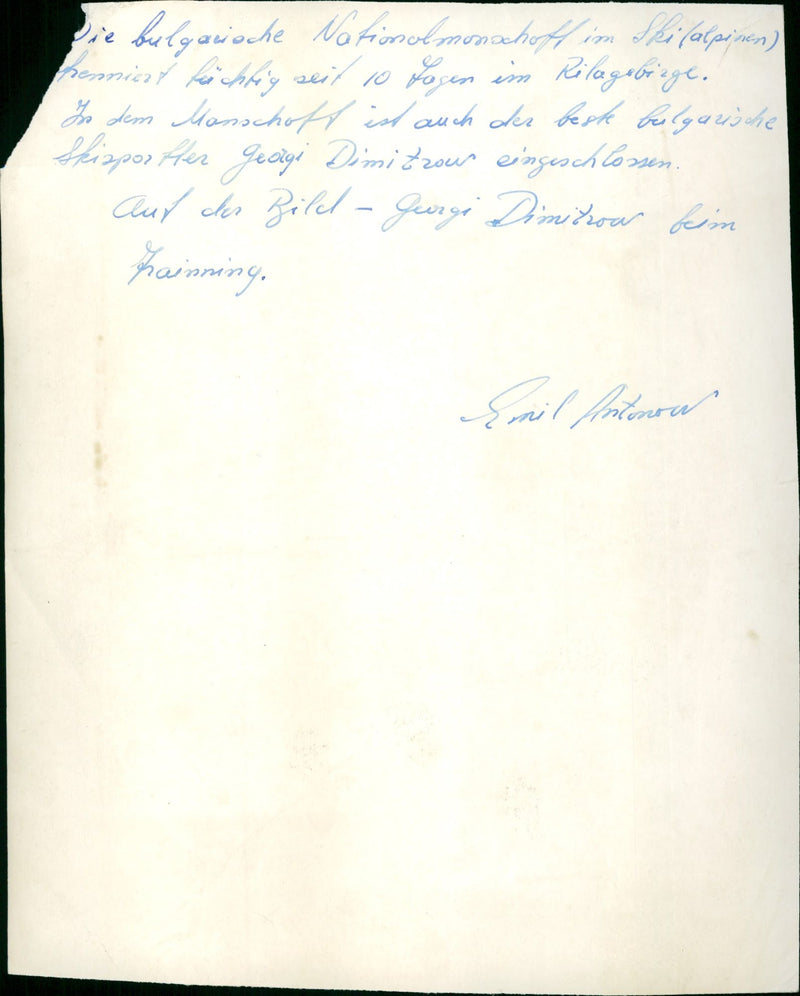 Die bulgarische Nationalmanschaft im Ski (alpinen)
trenniert tüchtig seit 10 Tagen im Rilagebirge.
In dem Manschaft ist auch der beste bulgarische
Skisportler Georgi Dimitrow eingeschlossen.
Auf der Bild – Georgi Dimitrow beim
Trainning.
Emil Antonow